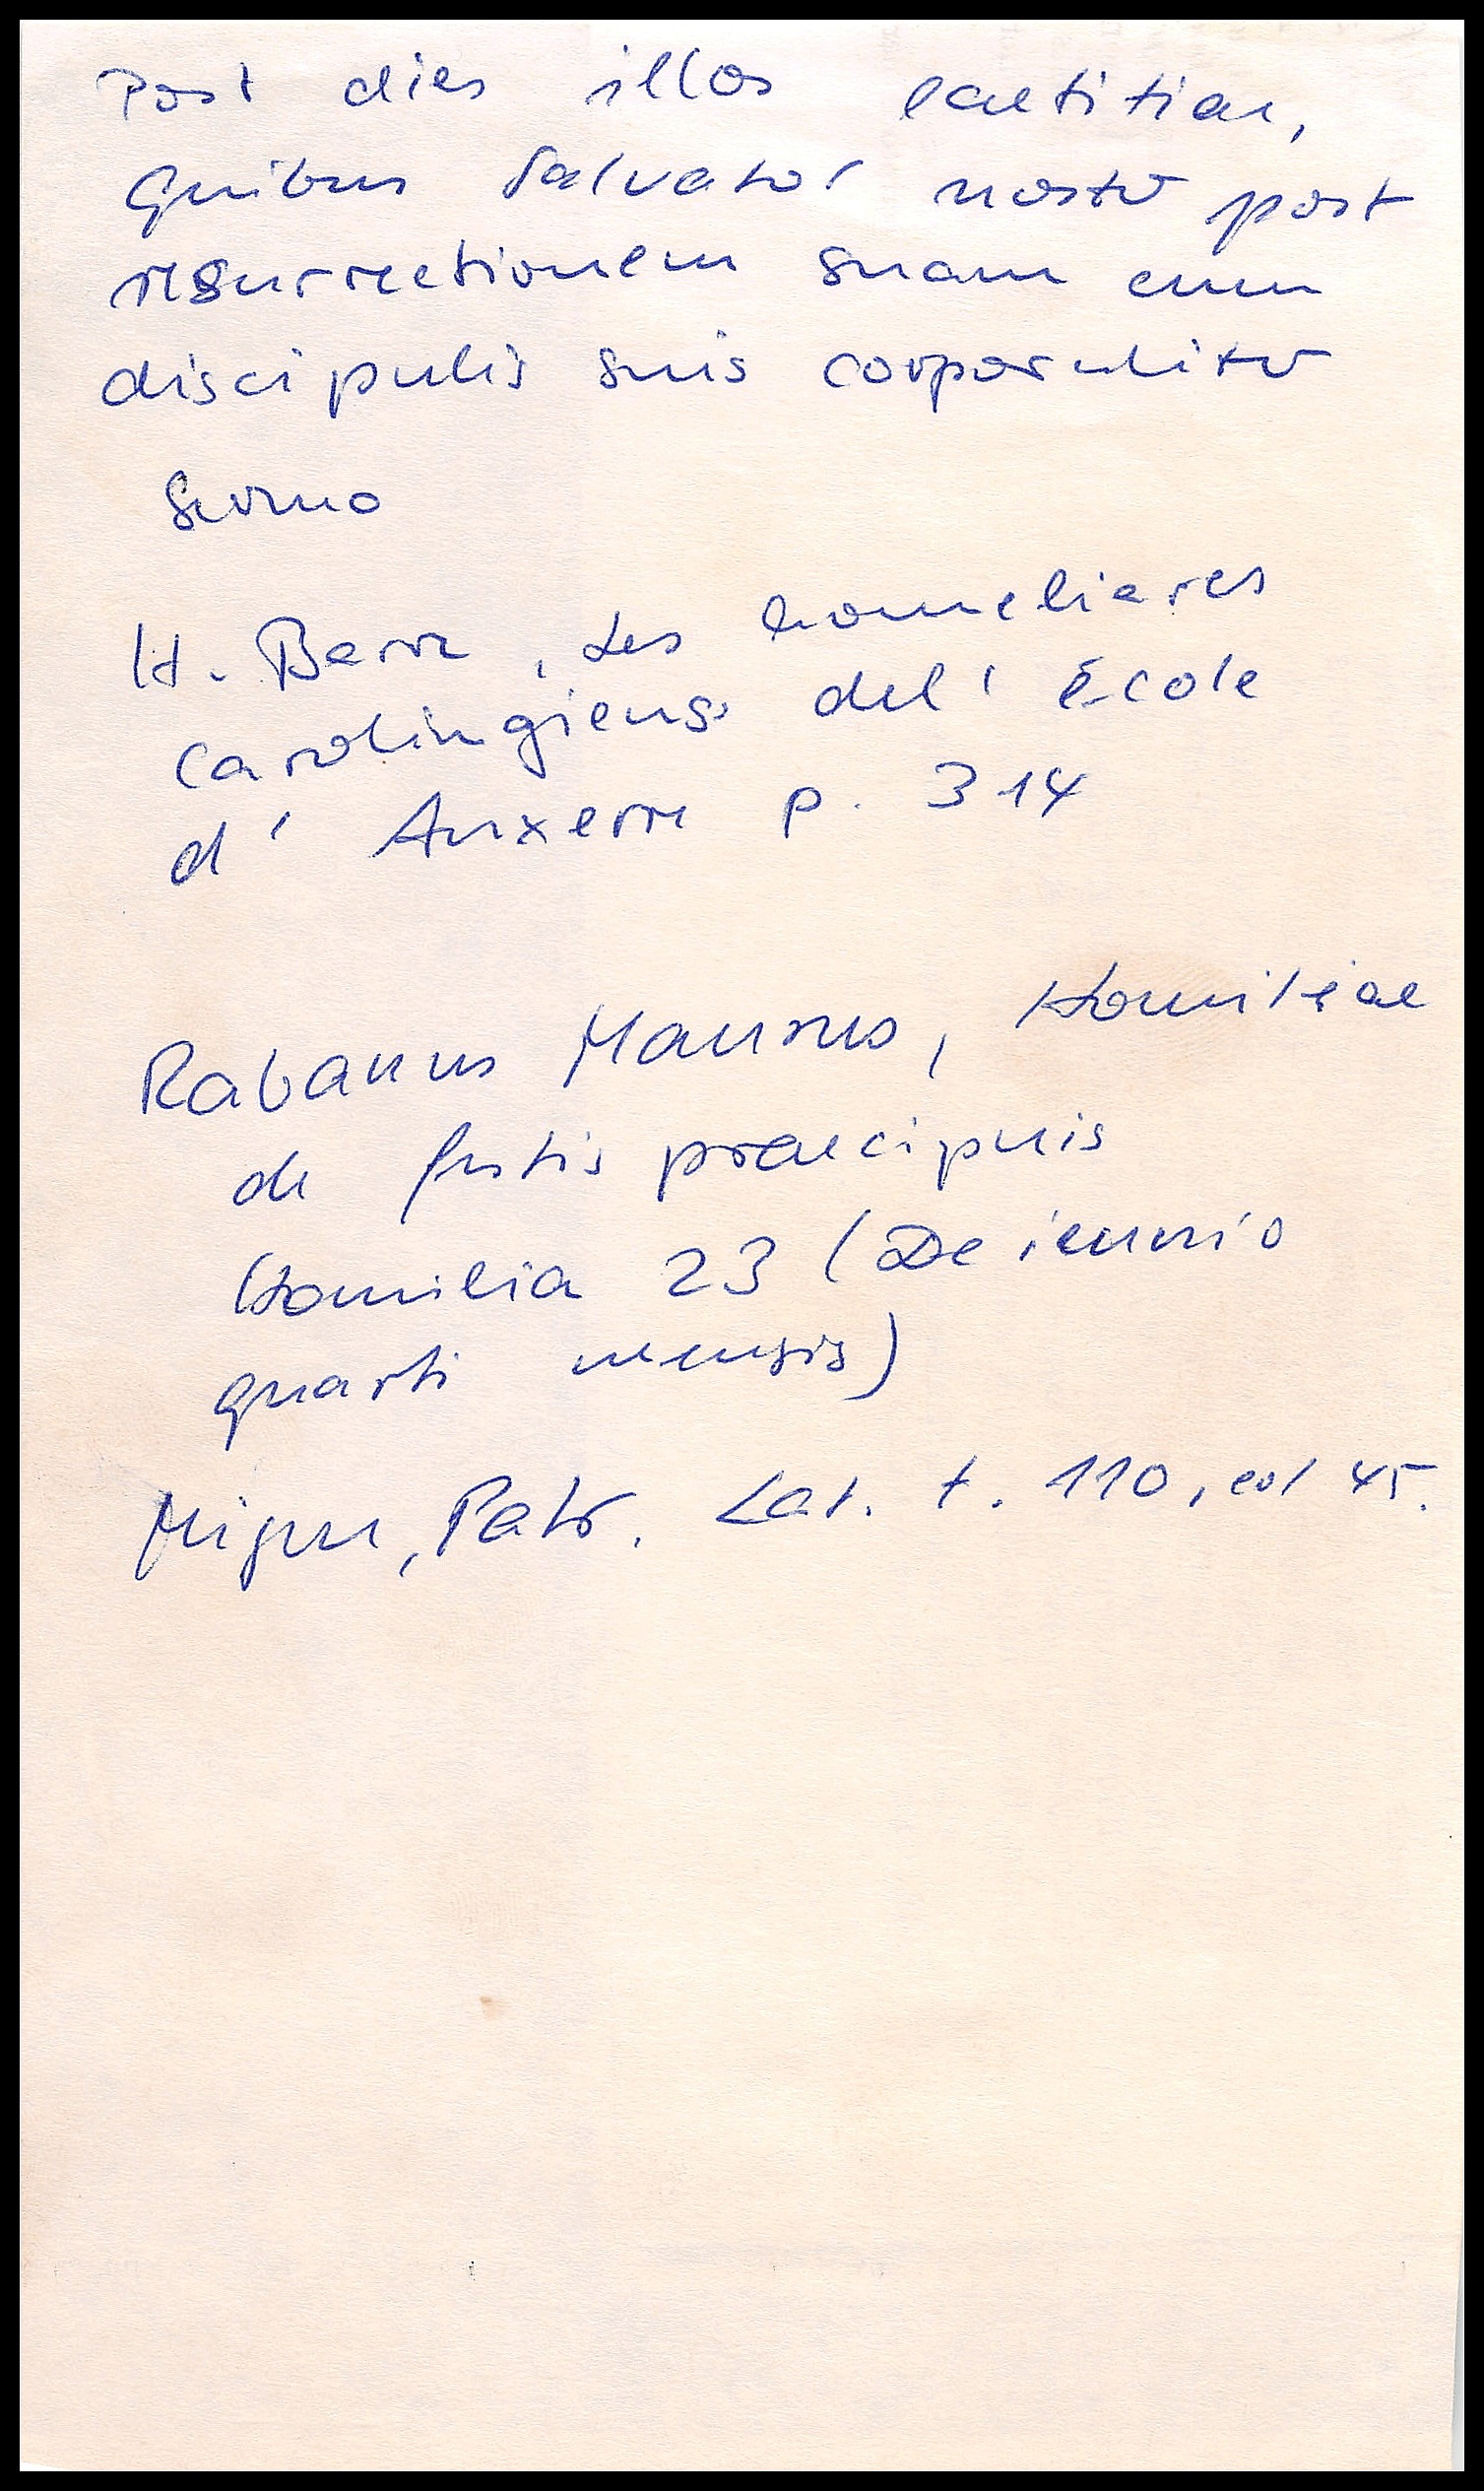 Post dies illos laetitiae,
quibus salvator noster post
resurrectionem suam cum
discipulis suis corporaliter
Sermo
H. Barré, Les homeliaires
carolingiens de l'école
d'Auxerre p. 314
Rabanus Maurus, Homiliae
de festis praecipuis
Homilia 23 (De ieiunio
quarti mensis)
Migne, Patr. Lat. t. 110, col 45.